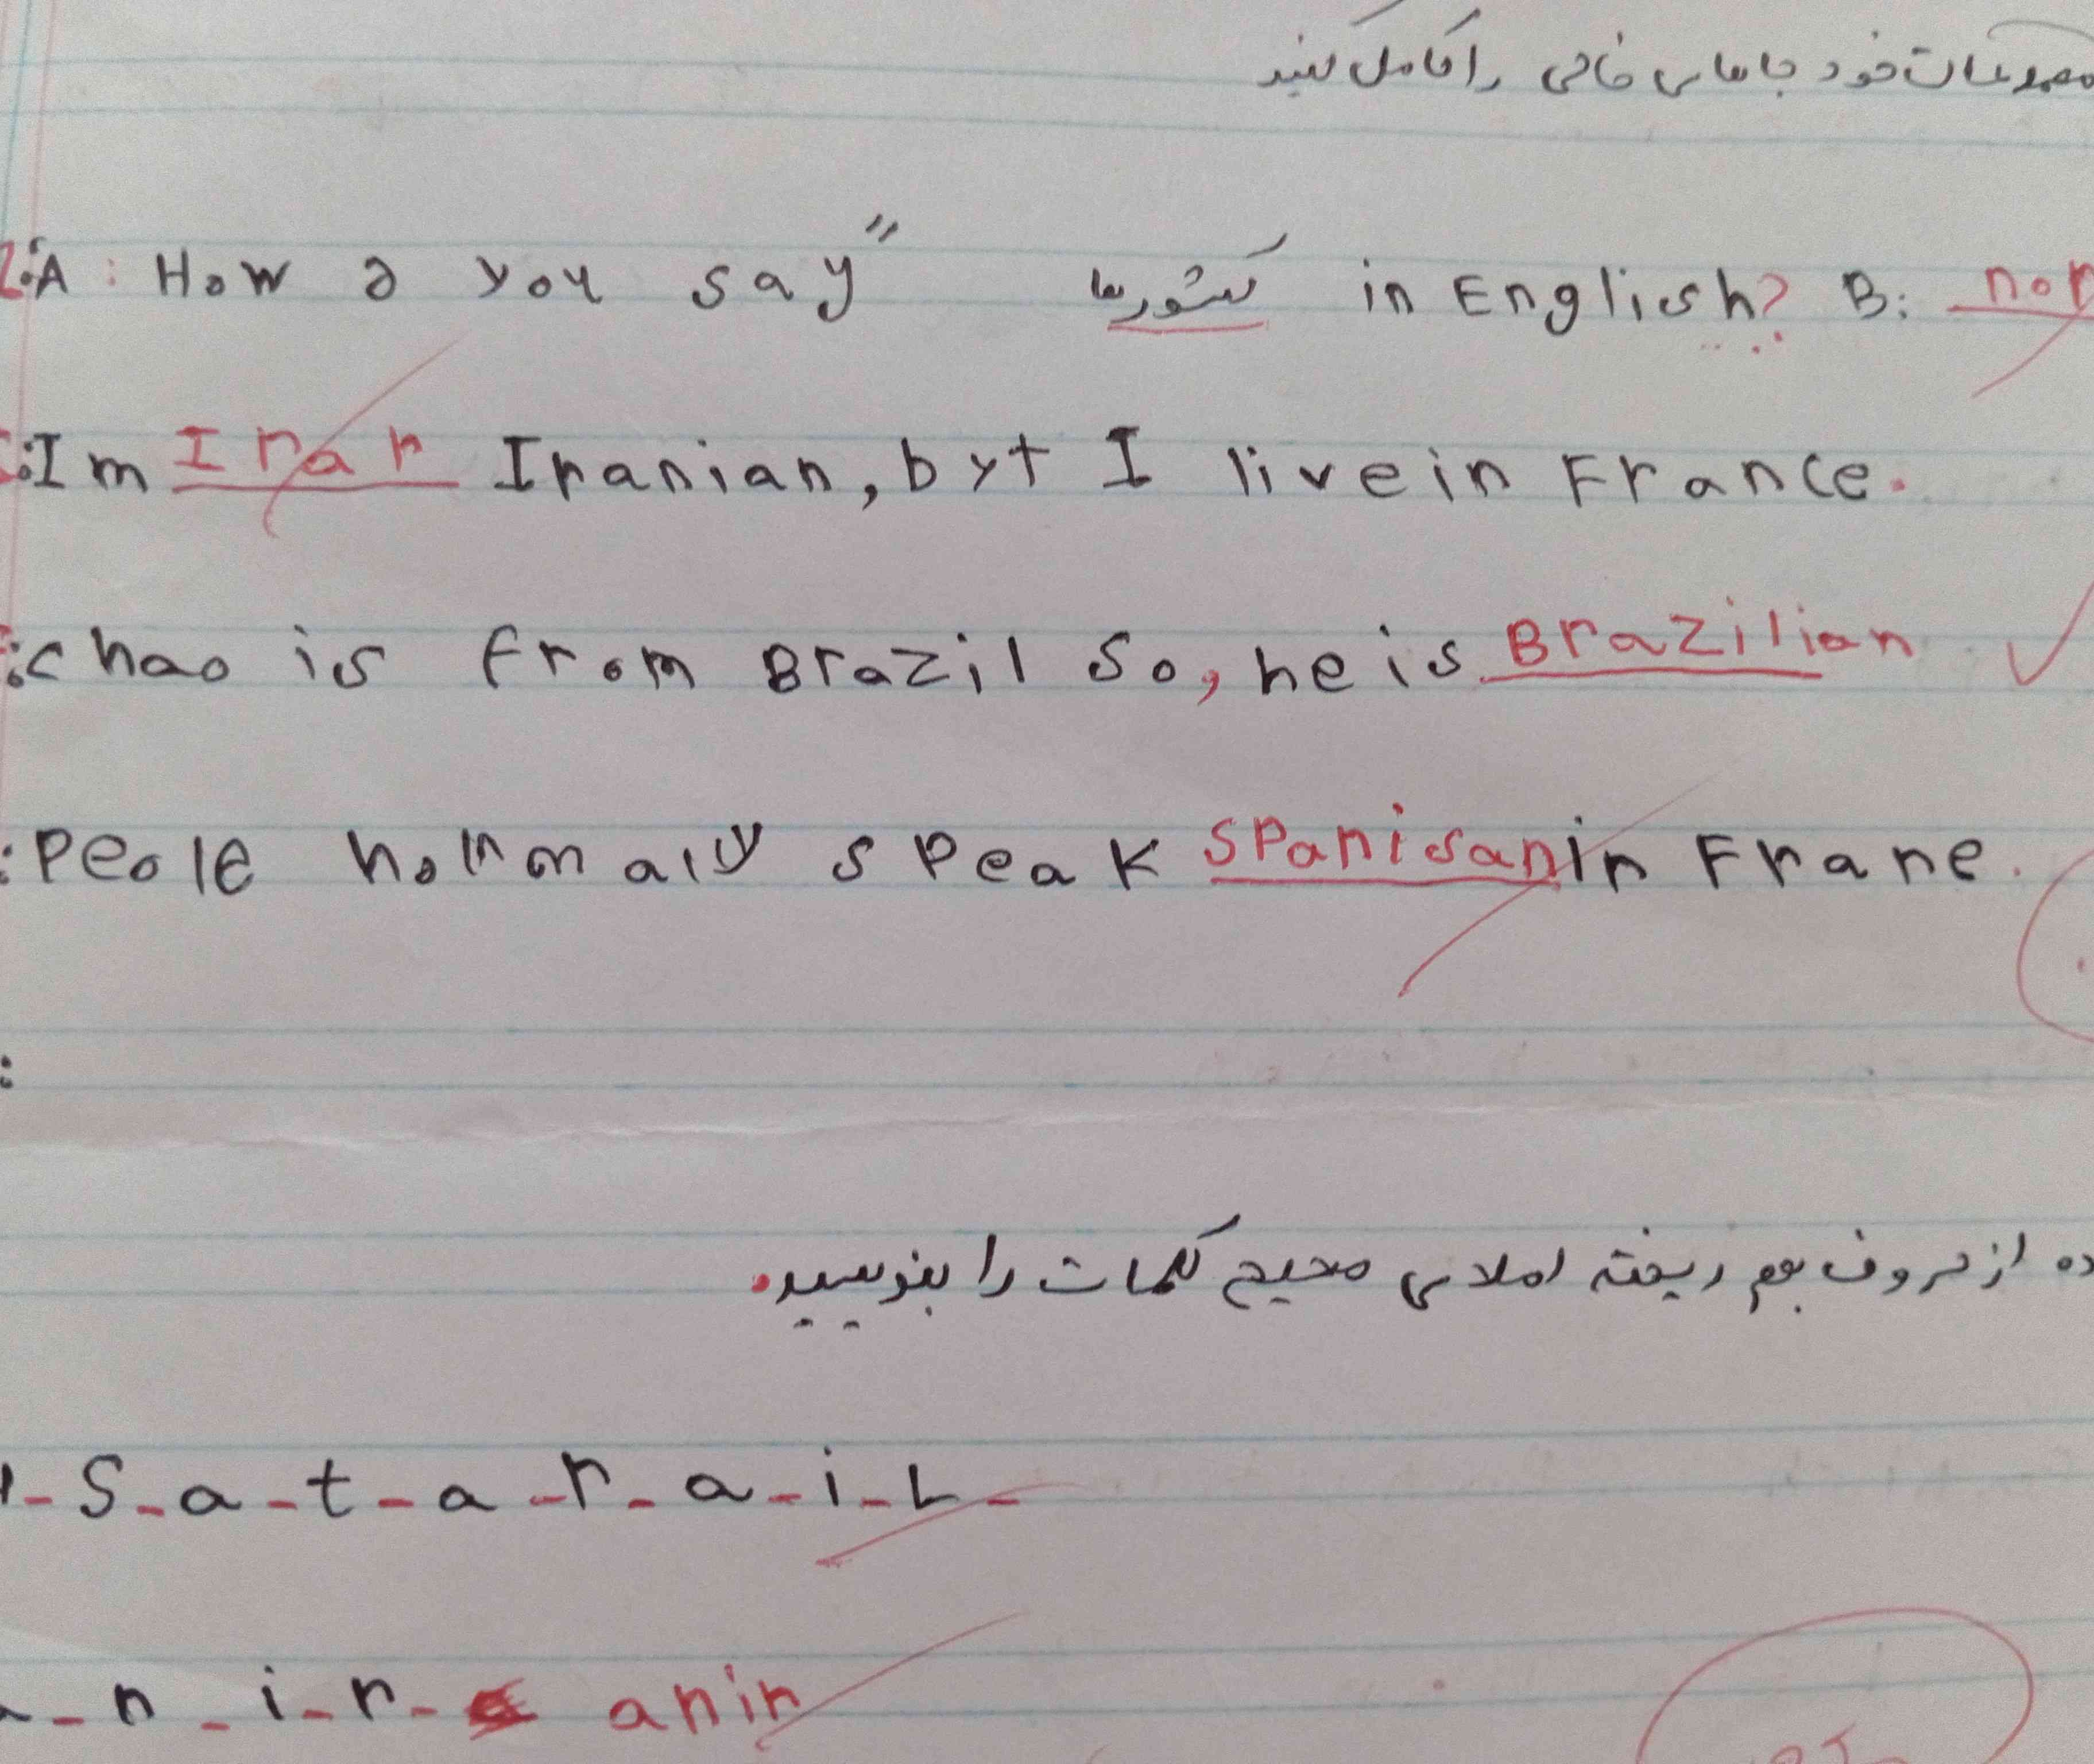 خود جاهای خالی را کامل کنید
A: How a you say" کشورها in English? B: non
Im Iran Iranian, byt I live in France.
chao is from Brazil so, he is Brazilian
:Peole nonmaly speak Spanisan in Frane.
:
ده از حروف بهم ریخته املای صحیح کلمات را بنویسید.
-S-a-t-a-r-a-i-L-
-n-i-r- anin